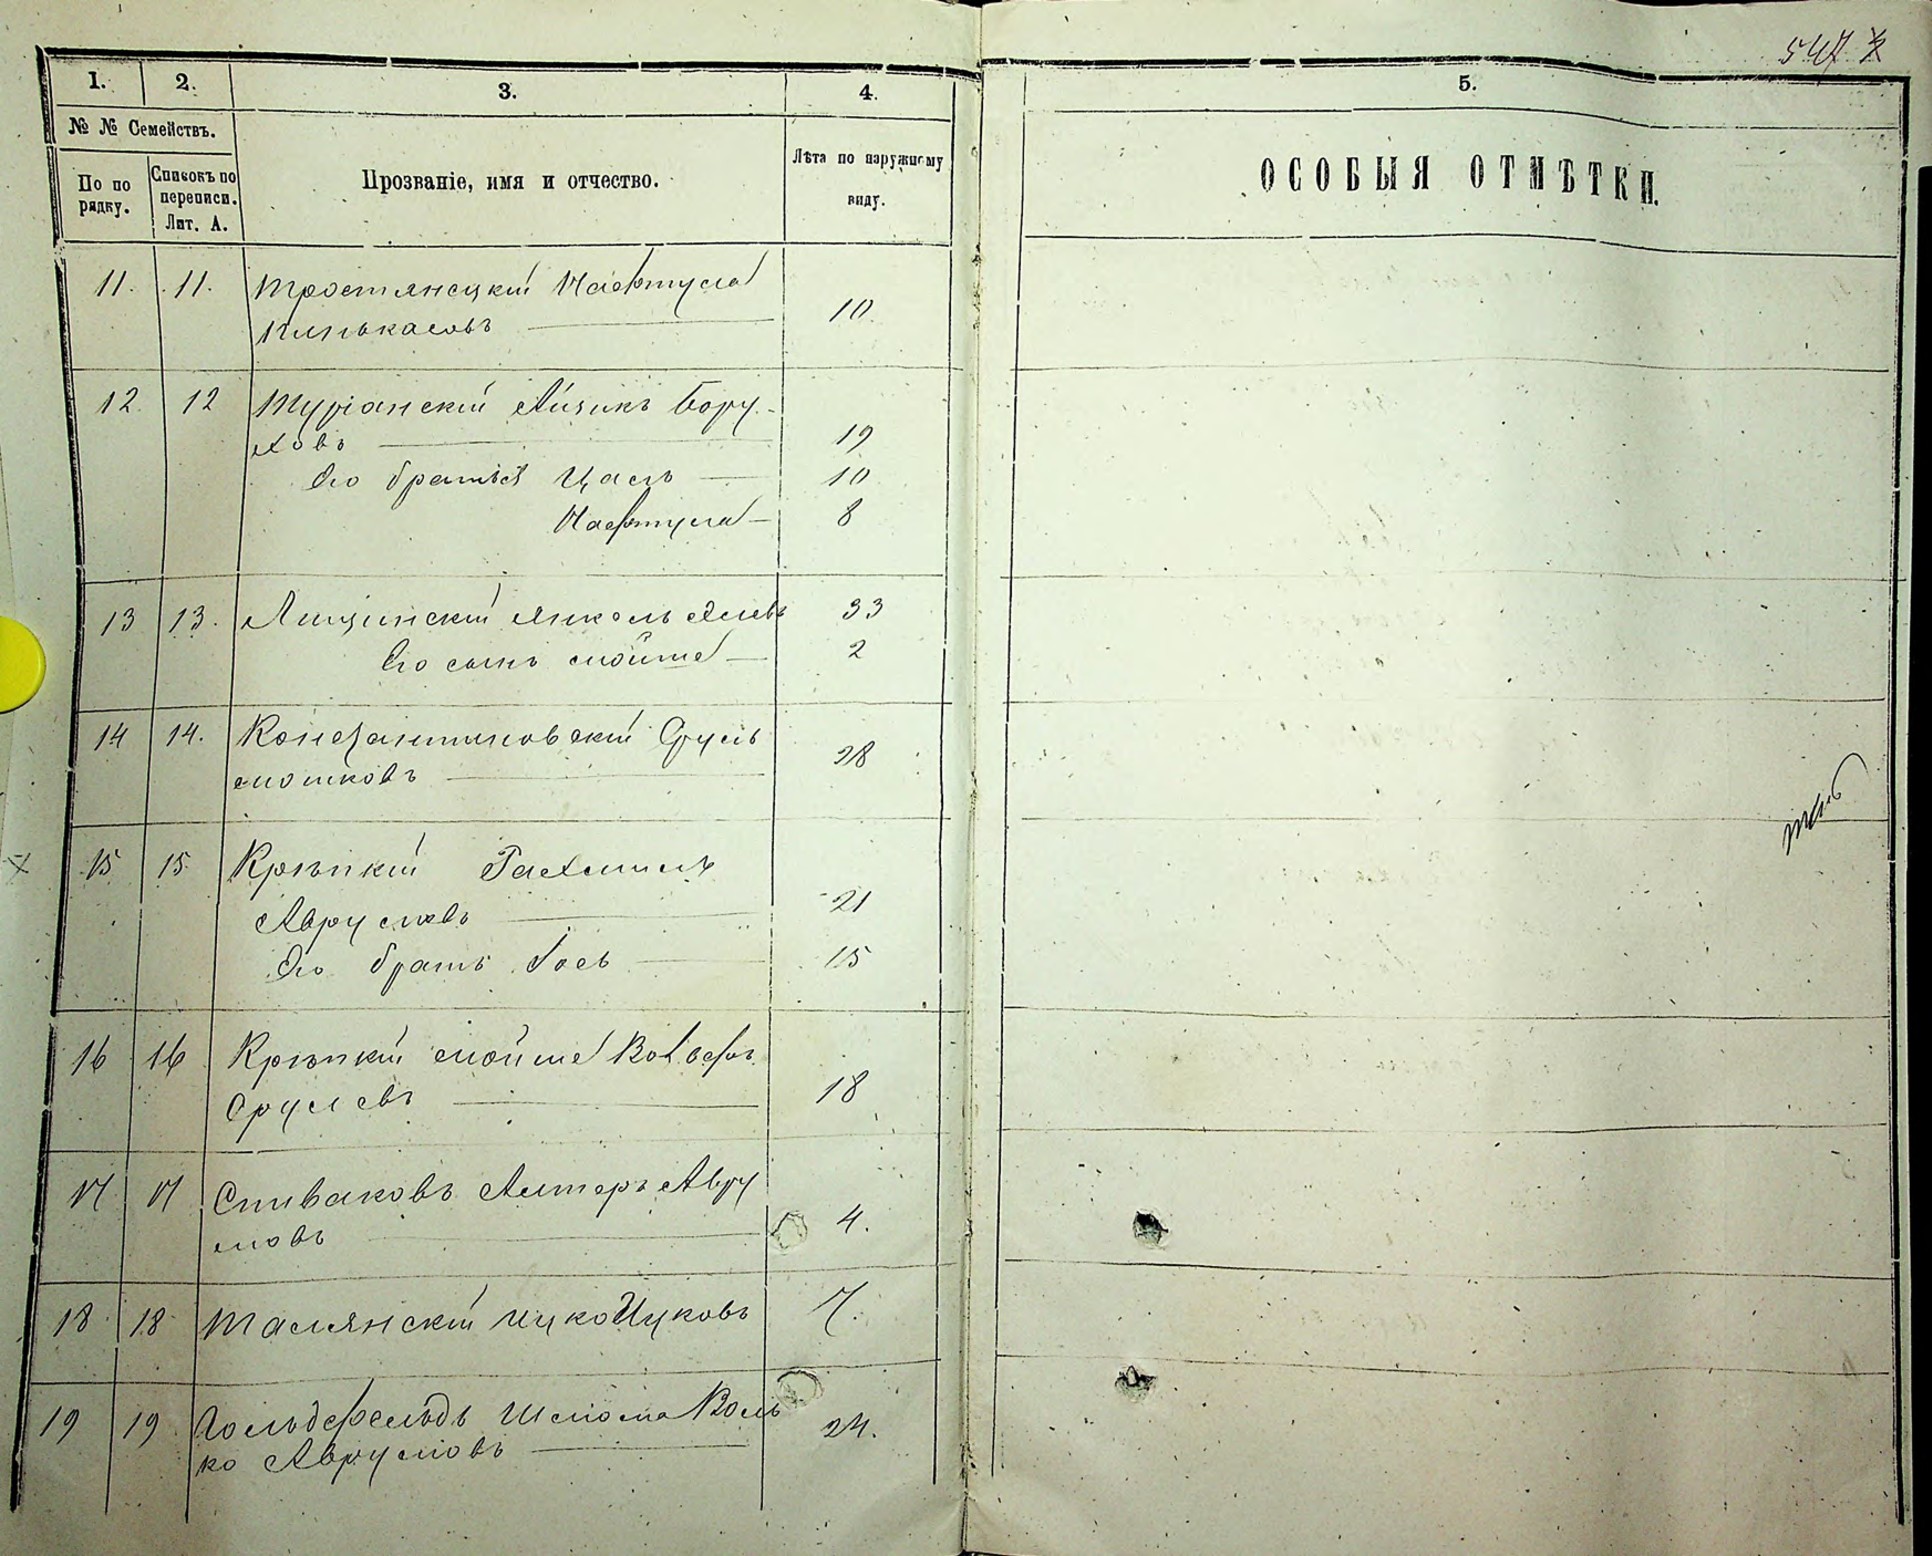 1. 2. 3. 4. 5.
№ № Семействъ.
По по рядку.
Списокъ по переписи. Лит. А.
Прозваніе, имя и отчество.
Лѣта по наружному
виду.
ОСОБЫЯ ОТМѢТКИ.
11. 11. Тростянецкій Нафтула
Пинькасовъ 10.
12. 12 Туріанскій Айзикъ Бору-
ховъ 19
Его братья Цаль 10
Нафтула 8
13 13. Лищинскій Янкель 33
Его сынъ Мойше 2
14 14. Константиновскій Сруль
Мошковъ 28
15 15 Крѣпкій Рахмиль
Аврумовъ 21
Его братъ Іось 15
16 16 Крѣпкій Мойше Вольфъ
Срулевъ 18
17 17 Спиваковъ Альтеръ Авру
мовъ 4.
18 18 Талянскій Ицко Ицковъ 7.
19 19 Гольдфельдъ Шлома Воль
ко Аврумовъ 24.